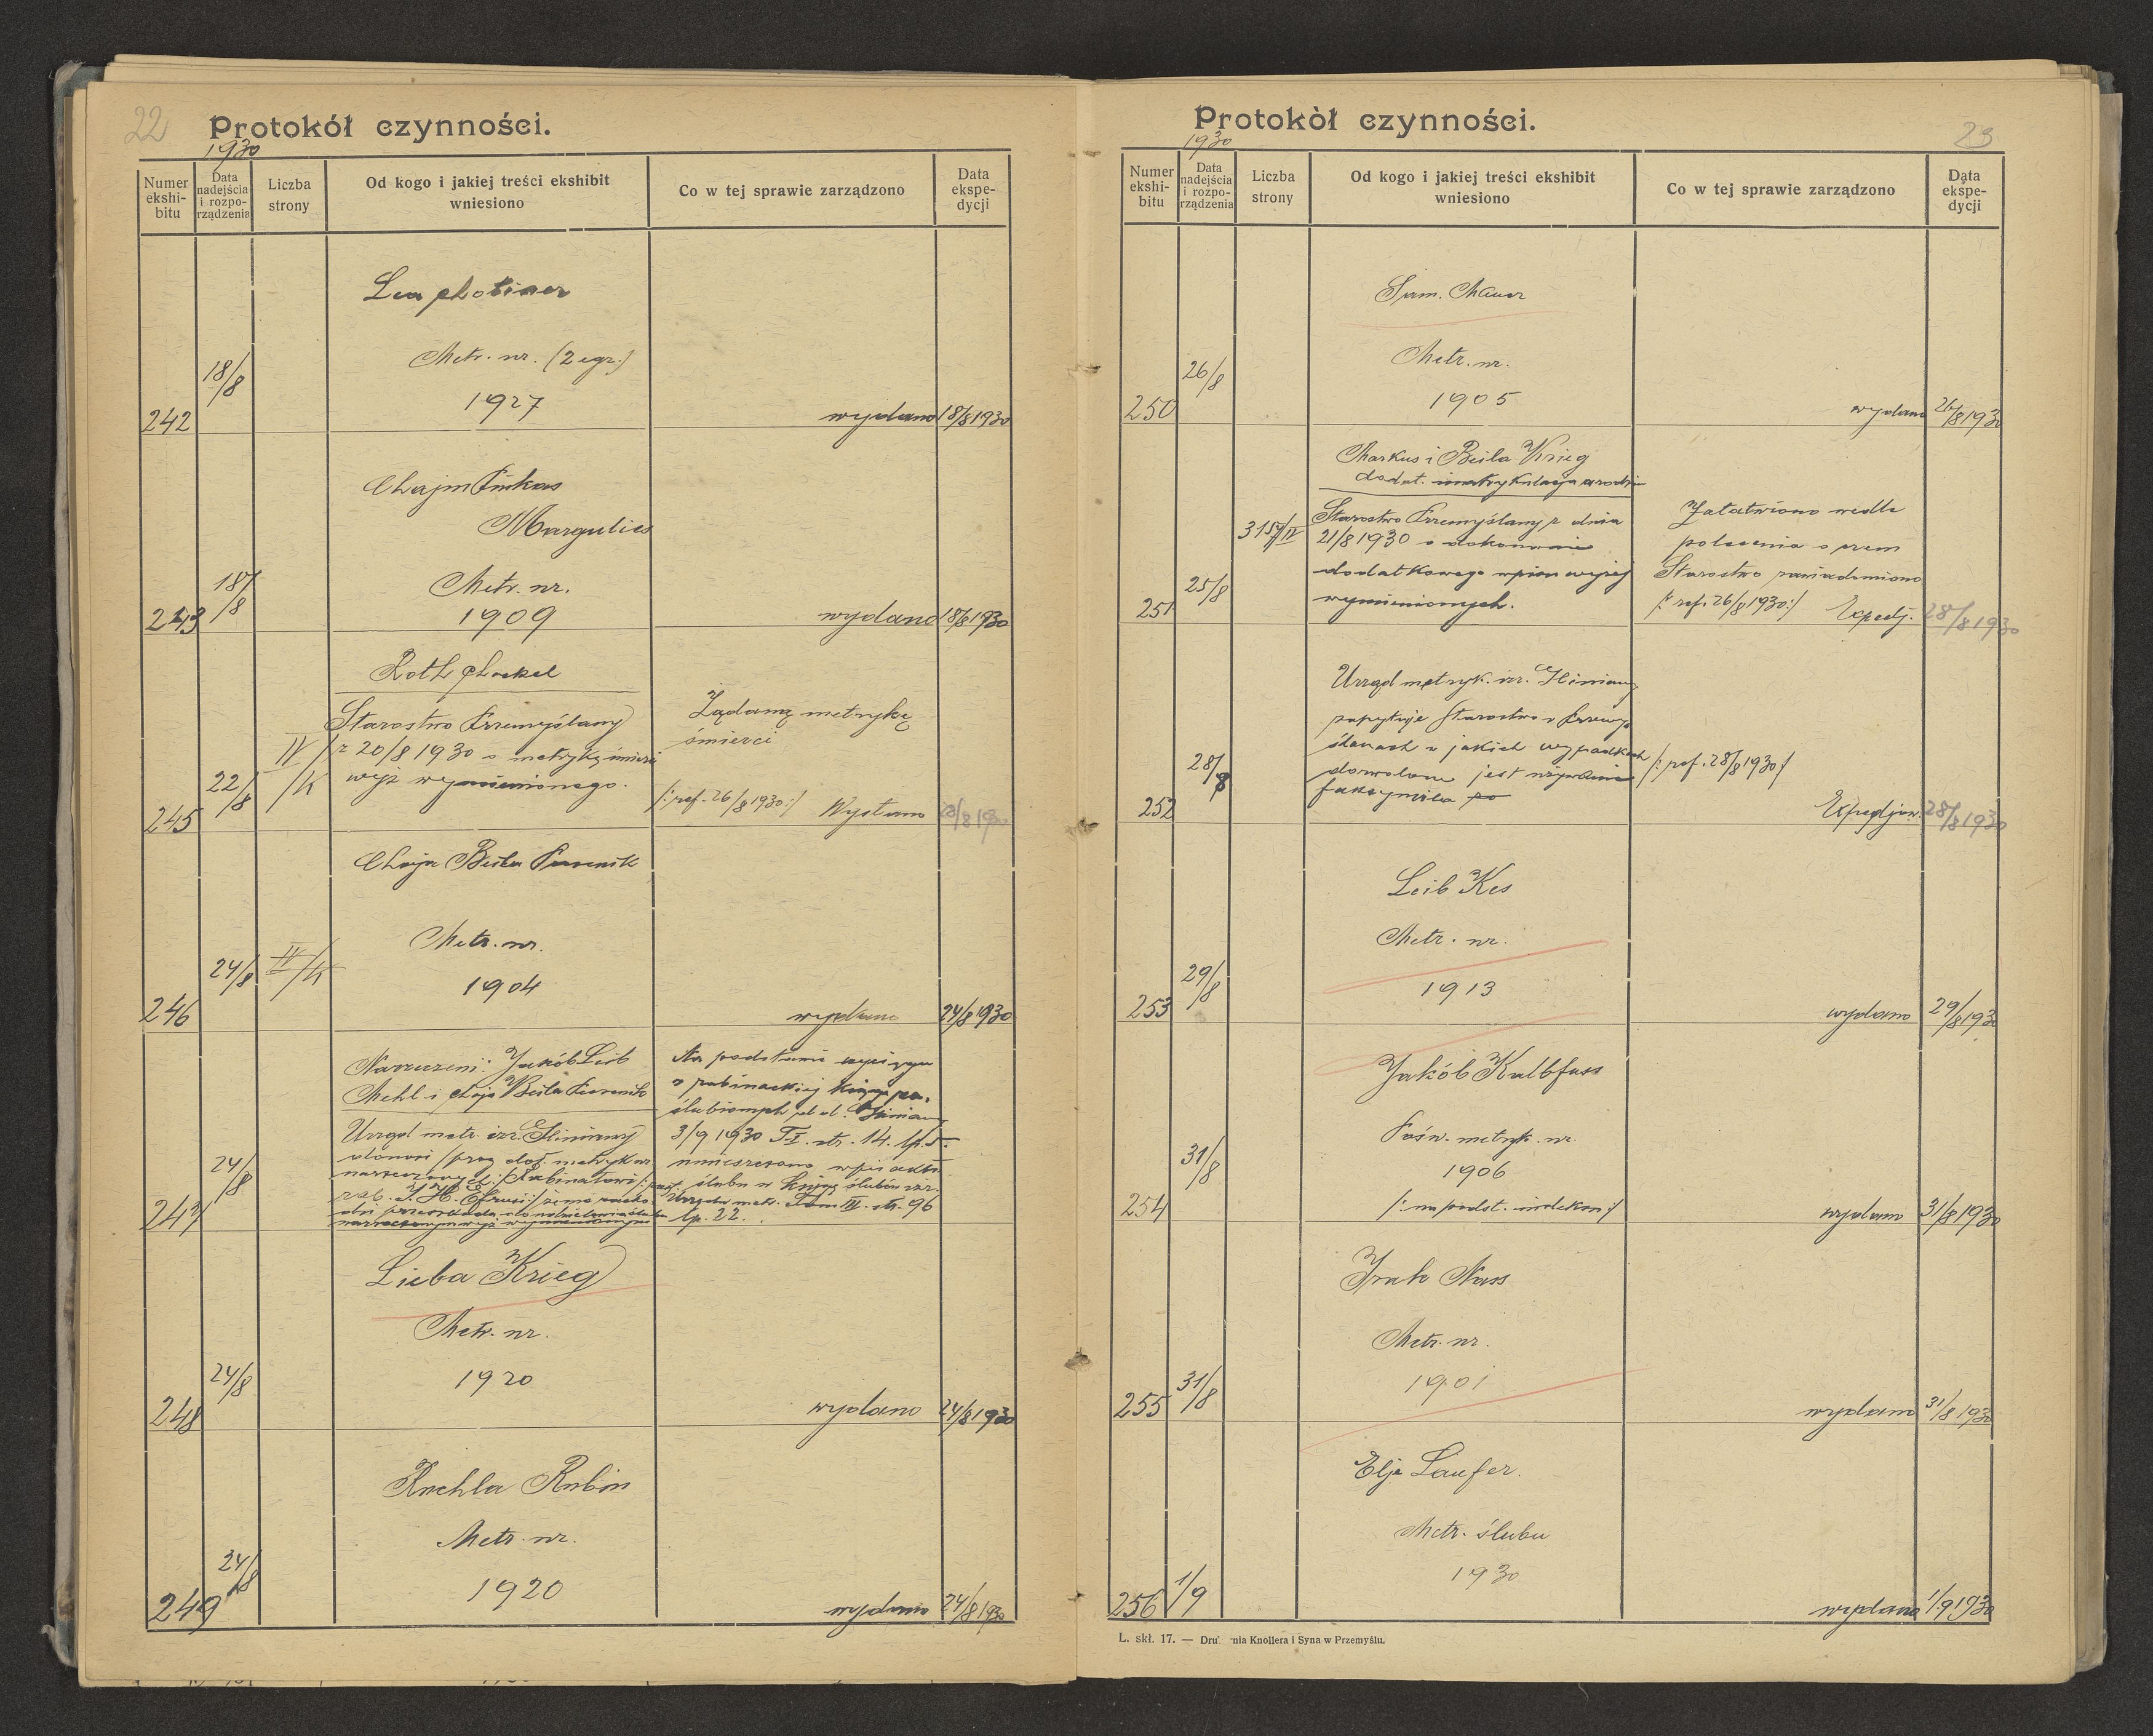 22
Protokół czynności.
1930
Numer ekshi-bitu
Data nadejścia i rozpo-rządzenia
Liczba strony
Od kogo i jakiej treści ekshibit wniesiono
Co w tej sprawie zarządzono
Data ekspe-dycji
Lea
Metr. nr. (2 egz.)
18/8
1927
242
wydano 18/8 1930
Chajm Pinkas
Margulies
18/8
Metr. nr.
1909
243
wydano 18/8 1930
Roth
Starostwo Przemyślany
IV/K
z 20/8 1930 o metrykę śmierci
wyż wymienionego.
Żądaną metrykę
śmierci
22/8
/: ref. 26/8 1930 :/
245
Wysłano 28/8 1930
Chaja Beila
Metr. nr.
24/8
IV/K
1904
246
wydano 24/8 1930
Narzeczeni: Jakób Leib
Mehl i Chaja Beila
Urząd metr. izr. Gliniany
Na podstawie wyciągu
z rabinackiej księgi po-
ślubionych
3/9 1930 T. I. str. 14. lp. 5.
umieszczono wpis aktu
ślubu w księgę ślubów izr.
Urzędu metr. Tom III. str. 96
lp. 22.
24/8
247
Lieba Krieg
Metr. nr.
24/8
1920
248
wydano 24/8 1930
Ruchla Rubin
Metr. nr.
24/8
1920
249
wydano 24/8 1930
Protokòł czynności.
23
1930
Numer ekshi-bitu
Data nadejścia i rozpo-rządzenia
Liczba strony
Od kogo i jakiej treści ekshibit wniesiono
Co w tej sprawie zarządzono
Data ekspe-dycji
Sam. Mauer
Metr. nr.
26/8
1905
250
wydano 26/8 1930
Markus i Beila Krieg
dodat. imatrykulacja urodzin
Starostwo Przemyślany z dnia
21/8 1930 o dokonanie
dodatkowego wpisu wyżej
wymienionych.
Załatwiono wedle
polecenia o czem
Starostwo zawiadomiono
/: ref. 26/8 1930 :/
25/8
251
Expedj. 28/8 1930
Urząd metryk. izr. Gliniany
zapytuje Starostwo w Przemy-
ślanach w jakich wypadkach
dozwolone jest używanie
faksymila
28/8
/: ref. 28/8 1930 :/
252
Expedjow. 28/8 1930
Leib Kes
Metr. nr.
29/8
1913
253
wydano 29/8 1930
Jakób Kalbfuss
Pośw. metryk. nr.
31/8
1906
/: na podst. indeksu :/
254
wydano 31/8 1930
Izak Nass
Metr. nr.
31/8
1901
255
wydano 31/8 1930
Elje Laufer.
Metr. ślubu
1930
256
1/9
wydano 1/9 1930
L. skł. 17. — Dru nia Knollera i Syna w Przemyślu.